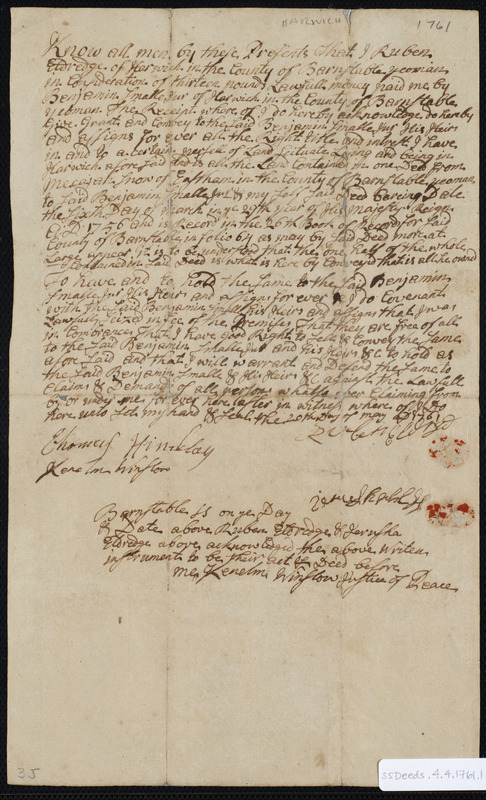 HARWICH
1761
Know all men by these Presents That I Ruben
Eldredge of Harwich in the County of Barnstable yeoman
in Consideration of thirteen pounds Lawfull money paid me by
Benjamin Smalle Jur of Harwich in the County of Barnstable
yeoman The Receipt where of I do hereby acknowledge do hereby
Give Grant and Convey to the said Benjamin Smalle Jur His Heirs
and assigns for ever all the Right title and intrest I have
in and to a certain percel of Land Lying and being in
Harwich afore said and is all the Land contained in one Deed from
Snow of Eastham in the County of Barnstable yeoman
to said Benjamin Smalle Jur & my self said Deed bareing Date
the Day of march in ye 29th year of His majestys Reign
A:D 1756 and is Record in the 26th Book of Records for said
County of Barnstable in folio by as may by said Deed more at
Large appear it is to be understood that the one half of the whole
Contained in said Deed is what is here by Convey'd that is all he ownd
To have and to hold the same to the said Benjamin
Smalle Jur His Heirs and assigns for ever & I do Covenant
with the said Benjamin Smalle His Heirs and assigns that I was
Lawfully Seized in fee of the Premises That they are free of all
incombrances That I have Good Right to Sell & Convey the Same
to the said Benjamin Smalle Jur and His Heirs &c to hold as
afore said and that I will warrant and Defend the same to
the said Benjamin Smalle & His Heirs &c against the Lawfull
Claims & Demands of all persons whatso ever Claiming from
by or under me for ever here after in witness where of I Do
here unto Set my hand & Seal the 20th Day of may AD 1761
Thomas Hinckley
Kenelm Winslow
Barnstable Ss on ye Day
& Date above Ruben Eldredge & Jerusha
Eldredge above acknowledged the above writen
instrument to be their act & Deed before
me Kenelm Winslow Justice of Peace
35
SSDeeds.4.4.1761.1